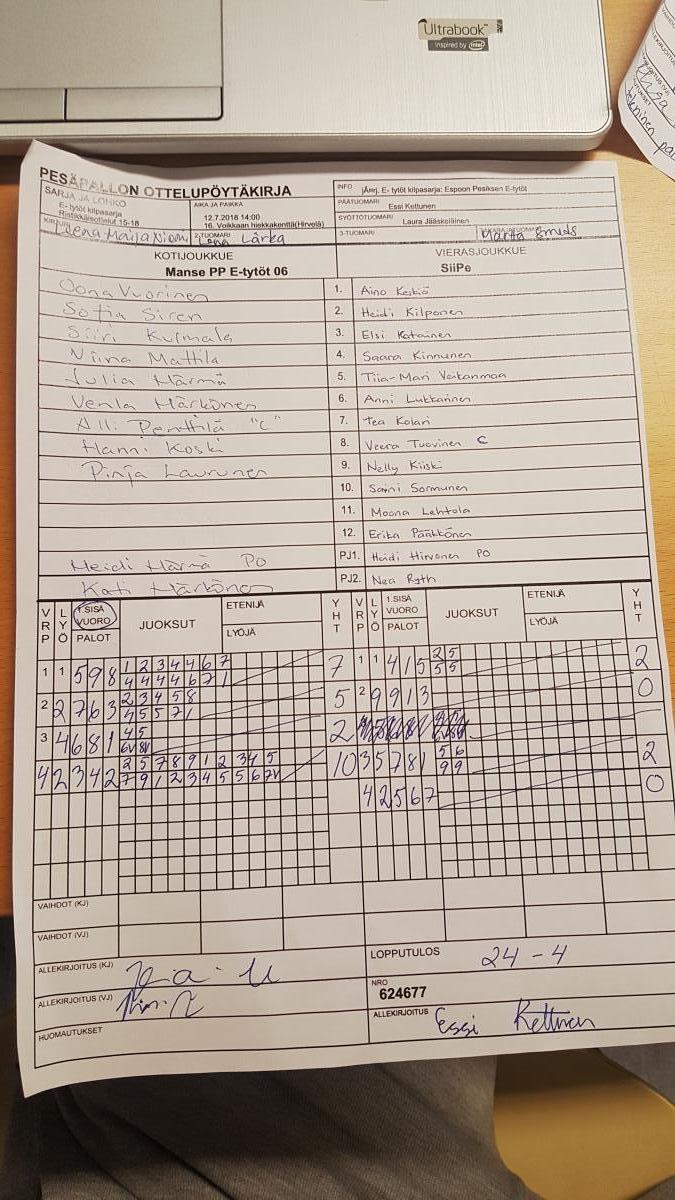 Ultrabook™
inspired by intel
PESÄPALLON OTTELUPÖYTÄKIRJA
SARJA JA LOHKO
E- tytöt kilpasarja
Ristikkäisottelut 15-18
AIKA JA PAIKKA
12.7.2018 14:00
16. Voikkaan hiekkakenttä(Hirvelä)
INFO jÄrrj. E- tytöt kilpasarja: Espoon Pesiksen E-tytöt
PÄÄTUOMARI Essi Kettunen
SYÖTTÖTUOMARI Laura Jääskeläinen
2-TUOMARI Lena Lärka
3-TUOMARI
KOTIJOUKKUE
Manse PP E-tytöt 06
VIERASJOUKKUE
SiiPe
Oona Vuorinen 1. Aino Keskiö
Sofia Siren 2. Heidi Kilponen
Siiri Kulmala 3. Elsi Katainen
Niina Mattila 4. Saara Kinnunen
Julia Härmä 5. Tiia-Mari Veikanmaa
Venla Härkönen 6. Anni Lukkarinen
Alli Penttilä "C" 7. Tea Kolari
Hanni Koski 8. Veera Tuovinen C
Pinja Laurunen 9. Nelly Kiiski
10. Saini Sormunen
11. Moona Lehtola
12. Erika Pääkkönen
Heidi Härmä PO PJ1. Heidi Hirvonen PO
Kati Härkönen PJ2. Nea Ryth
VRP LYÖ 1.SISÄ VUORO PALOT JUOKSUT ETENIJÄ LYÖJÄ YHT VRP LYÖ 1.SISÄ VUORO PALOT JUOKSUT ETENIJÄ LYÖJÄ YHT
1 1 5 9 8 1 2 3 4 4 6 7 7 1 1 4 1 5 2 5 2
4 4 4 4 6 7 1 5 5
2 2 7 6 3 2 3 4 5 8 5 2 9 9 1 3 0
4 5 5 7 1
3 4 6 8 1 4 5 2
6V 8V
4 2 3 4 2 2 5 7 8 9 1 2 3 4 5 10 3 5 7 8 1 5 6 2
7 9 1 2 3 4 5 5 6 7V 9 9
4 2 5 6 7 0
VAIHDOT (KJ)
VAIHDOT (VJ)
ALLEKIRJOITUS (KJ)
LOPPUTULOS 24 - 4
ALLEKIRJOITUS (VJ)
NRO
624677
HUOMAUTUKSET
ALLEKIRJOITUS Essi Kettunen